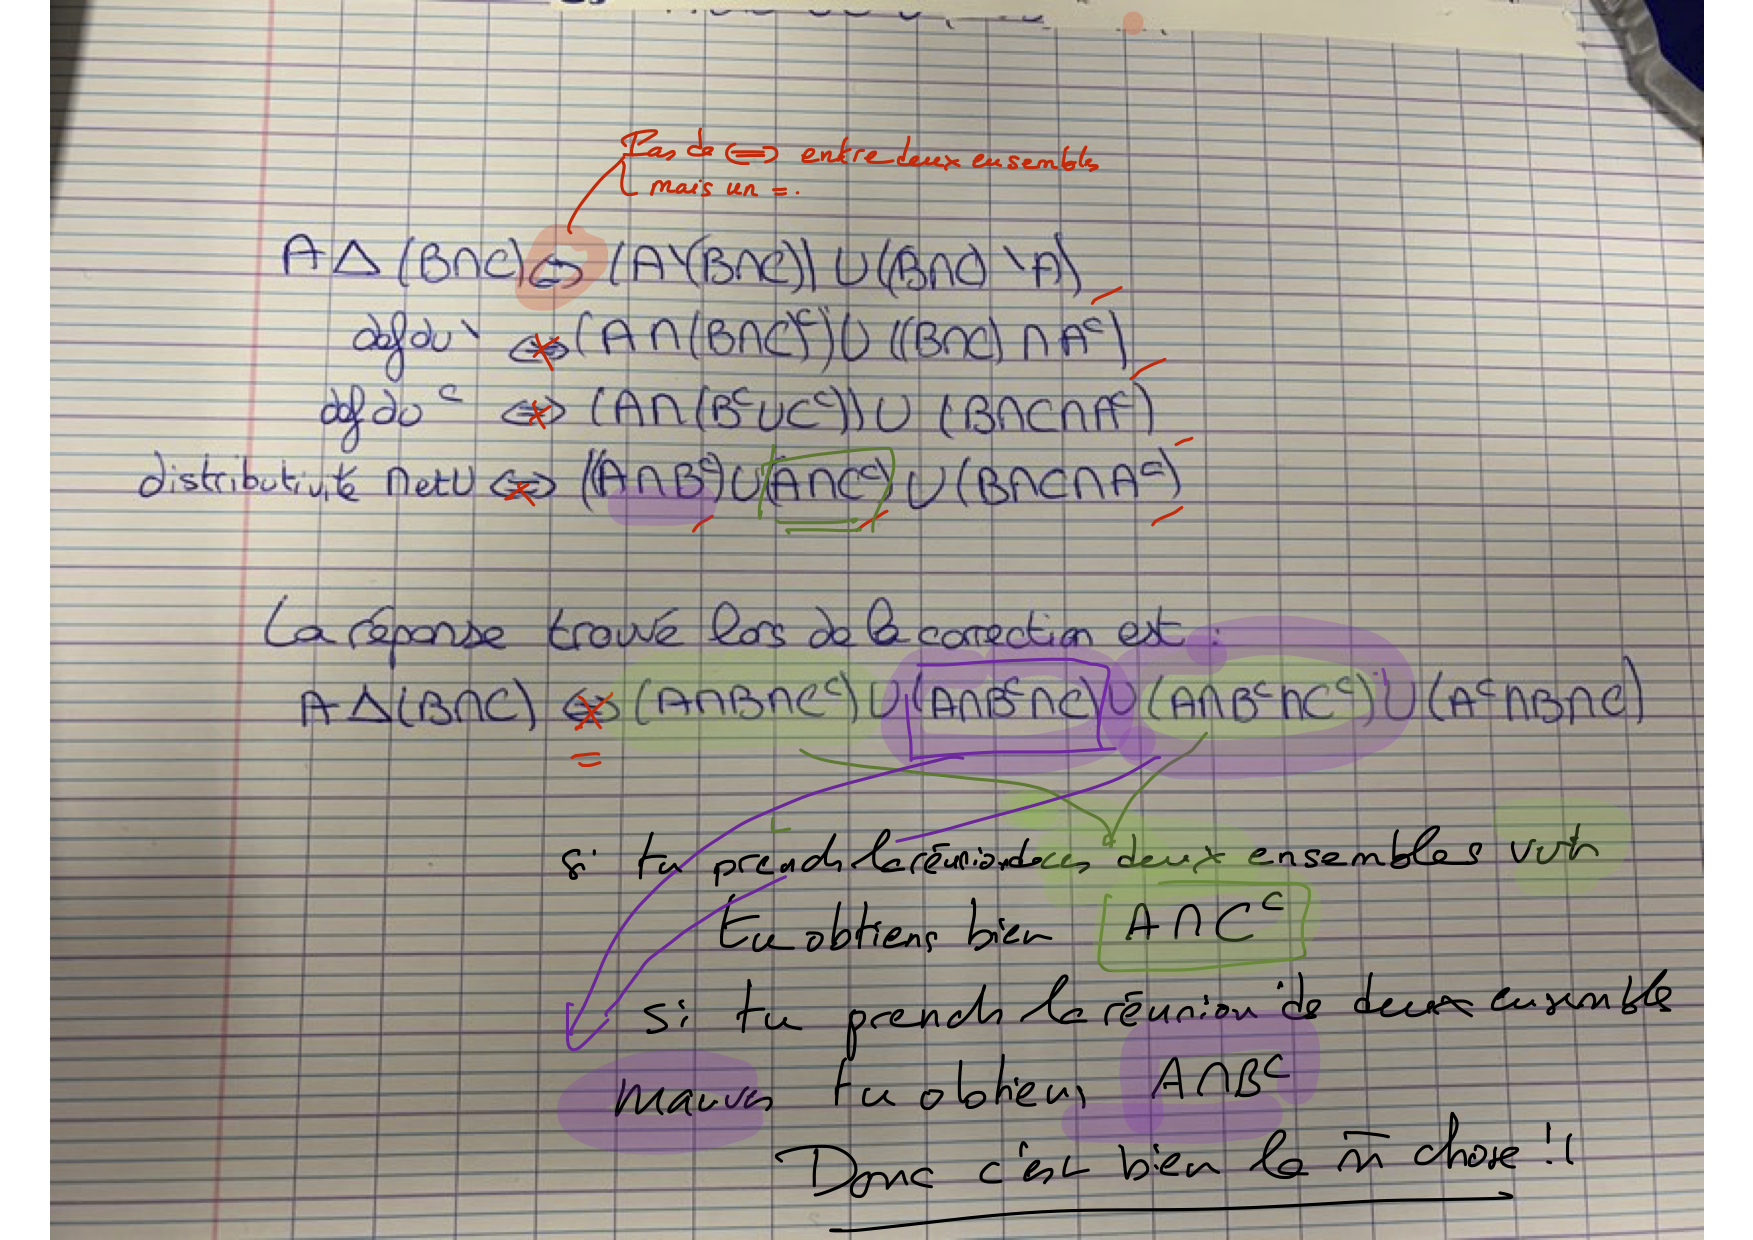 Pas de ⟺ entre deux ensembles
mais un =.
A △ (B∩C) ⟺ (A\(B∩C)) ∪ ((B∩C) \A)
def du \ ⟺ (A ∩ (B∩C)ᶜ) ∪ ((B∩C) ∩ Aᶜ)
def du ᶜ ⟺ (A∩(Bᶜ∪Cᶜ)) ∪ (B∩C∩Aᶜ)
distributivité ∩ et ∪ ⟺ ((A∩Bᶜ) ∪ (A∩Cᶜ) ∪ (B∩C∩Aᶜ)
La réponse trouvé lors de la correction est :
A △ (B∩C) ⟺ (A∩B∩Cᶜ) ∪ (A∩Bᶜ∩C) ∪ (A∩Bᶜ∩Cᶜ) ∪ (Aᶜ∩B∩C)
=
si tu prends la réunion de ces deux ensembles
tu obtiens bien A∩Cᶜ
si tu prends la réunion de deux ensemble
mauves tu obtiens A∩Bᶜ
Donc c'est bien la m̄ chose !!